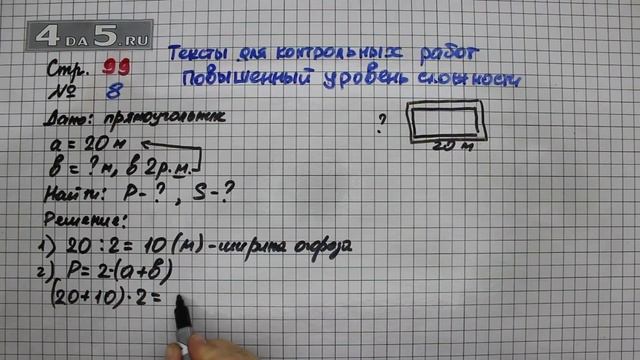 4DA5.RU
Тексты для контрольных работ
Повышенный уровень сложности
Стр. 99
№ 8
Дано: прямоугольник
a = 20 м
b = ? м, в 2 р. м.
Найти: P - ? , S - ?
Решение:
1) 20 : 2 = 10 (м) - ширина огорода
2) P = 2·(a+b)
(20+10)·2 =
?
20 м